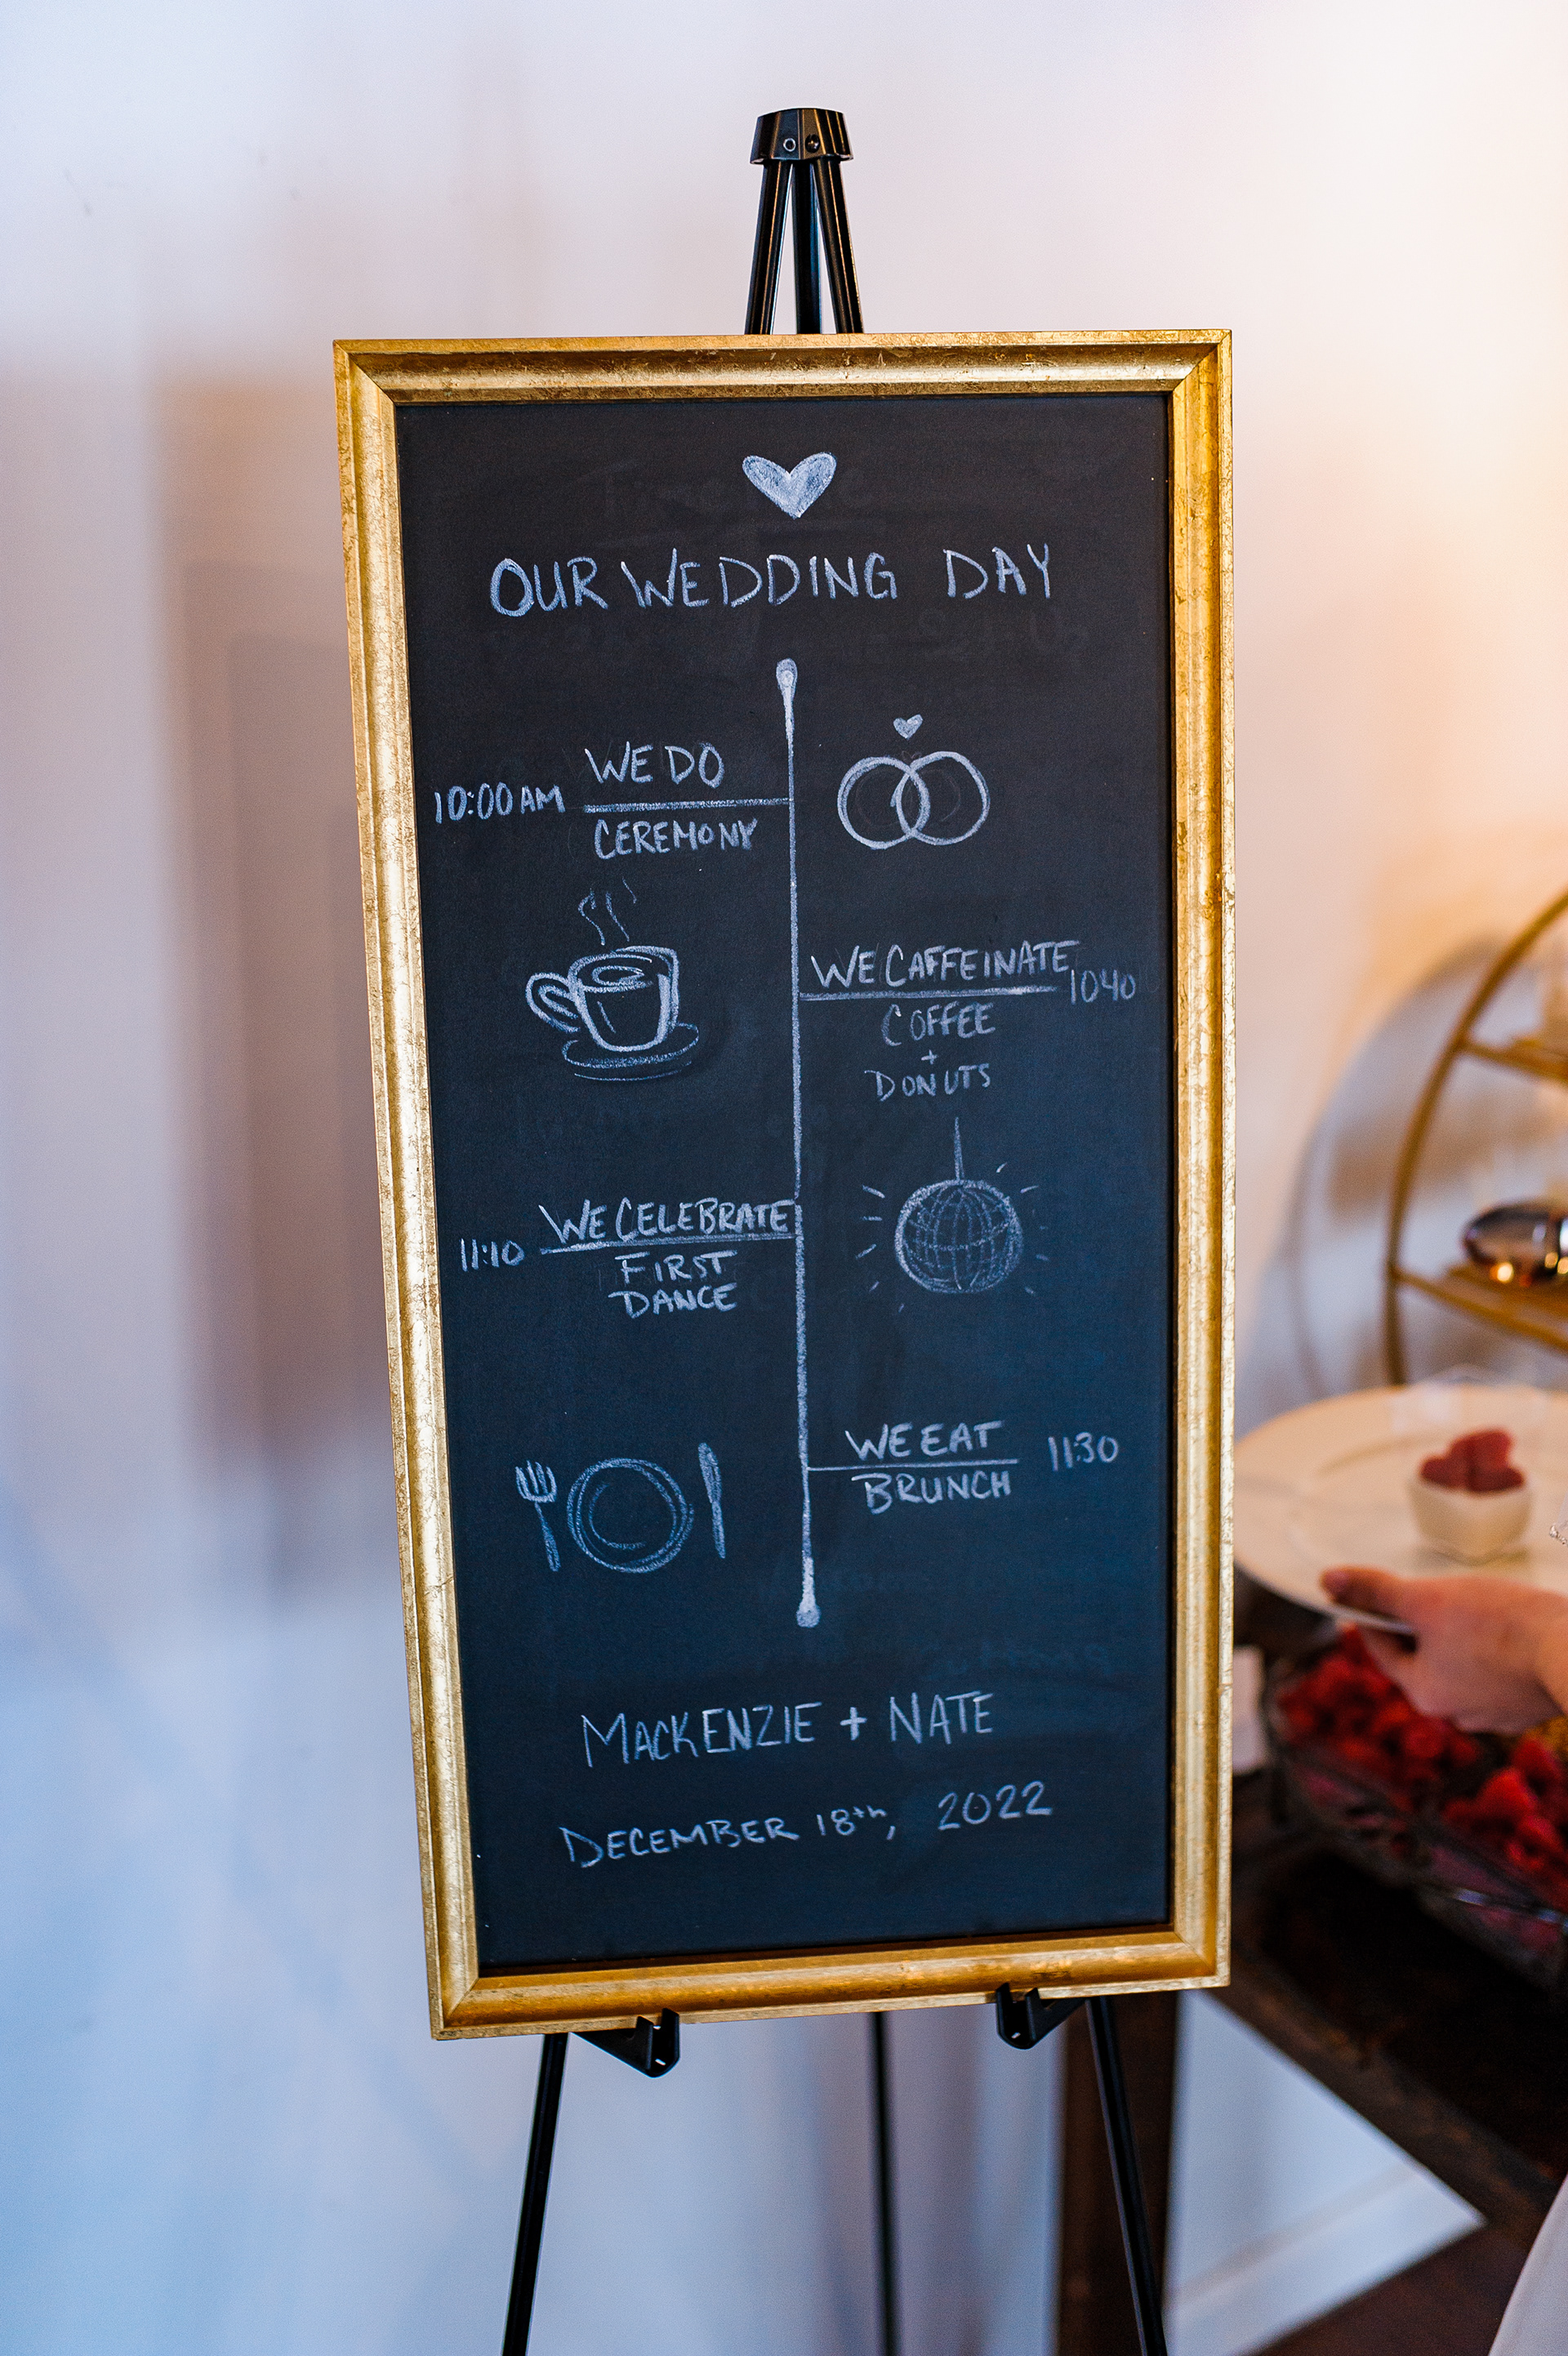 OUR WEDDING DAY
WE DO
10:00 AM
CEREMONY
WE CAFFEINATE
1040
COFFEE
+
DONUTS
WE CELEBRATE
11:10
FIRST
DANCE
WE EAT
11:30
BRUNCH
MACKENZIE + NATE
DECEMBER 18th, 2022